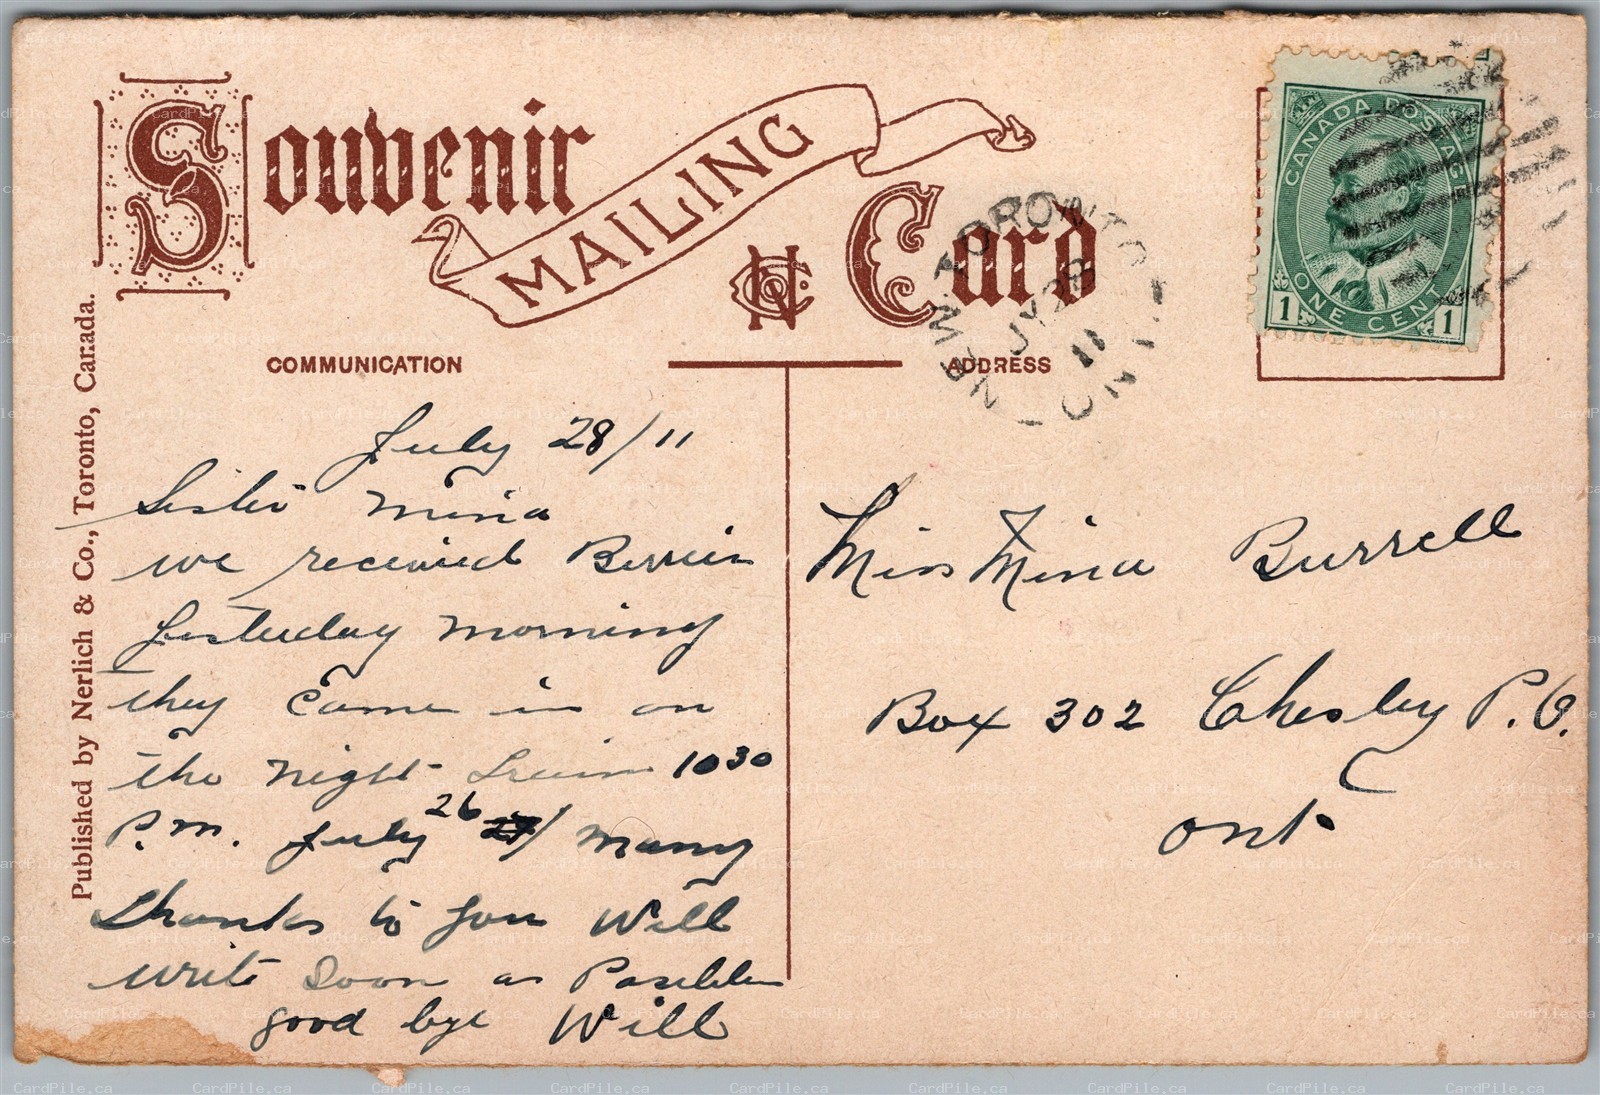 Souvenir
MAILING
Card
COMMUNICATION
ADDRESS
Published by Nerlich & Co., Toronto, Canada.
TORONTO
JY 28
11
ONT
CANADA POSTAG
ONE CENT
1 1
July 28/11
Sister Mina
we received Berries
yesterday morning
they came in on
the night Train 1030
P.M. July 26 27/ Many
thanks to you Will
write soon as Possible
good bye Will
Miss Mina Burrell
Box 302 Chesley P.O.
Ont
CardPile.ca